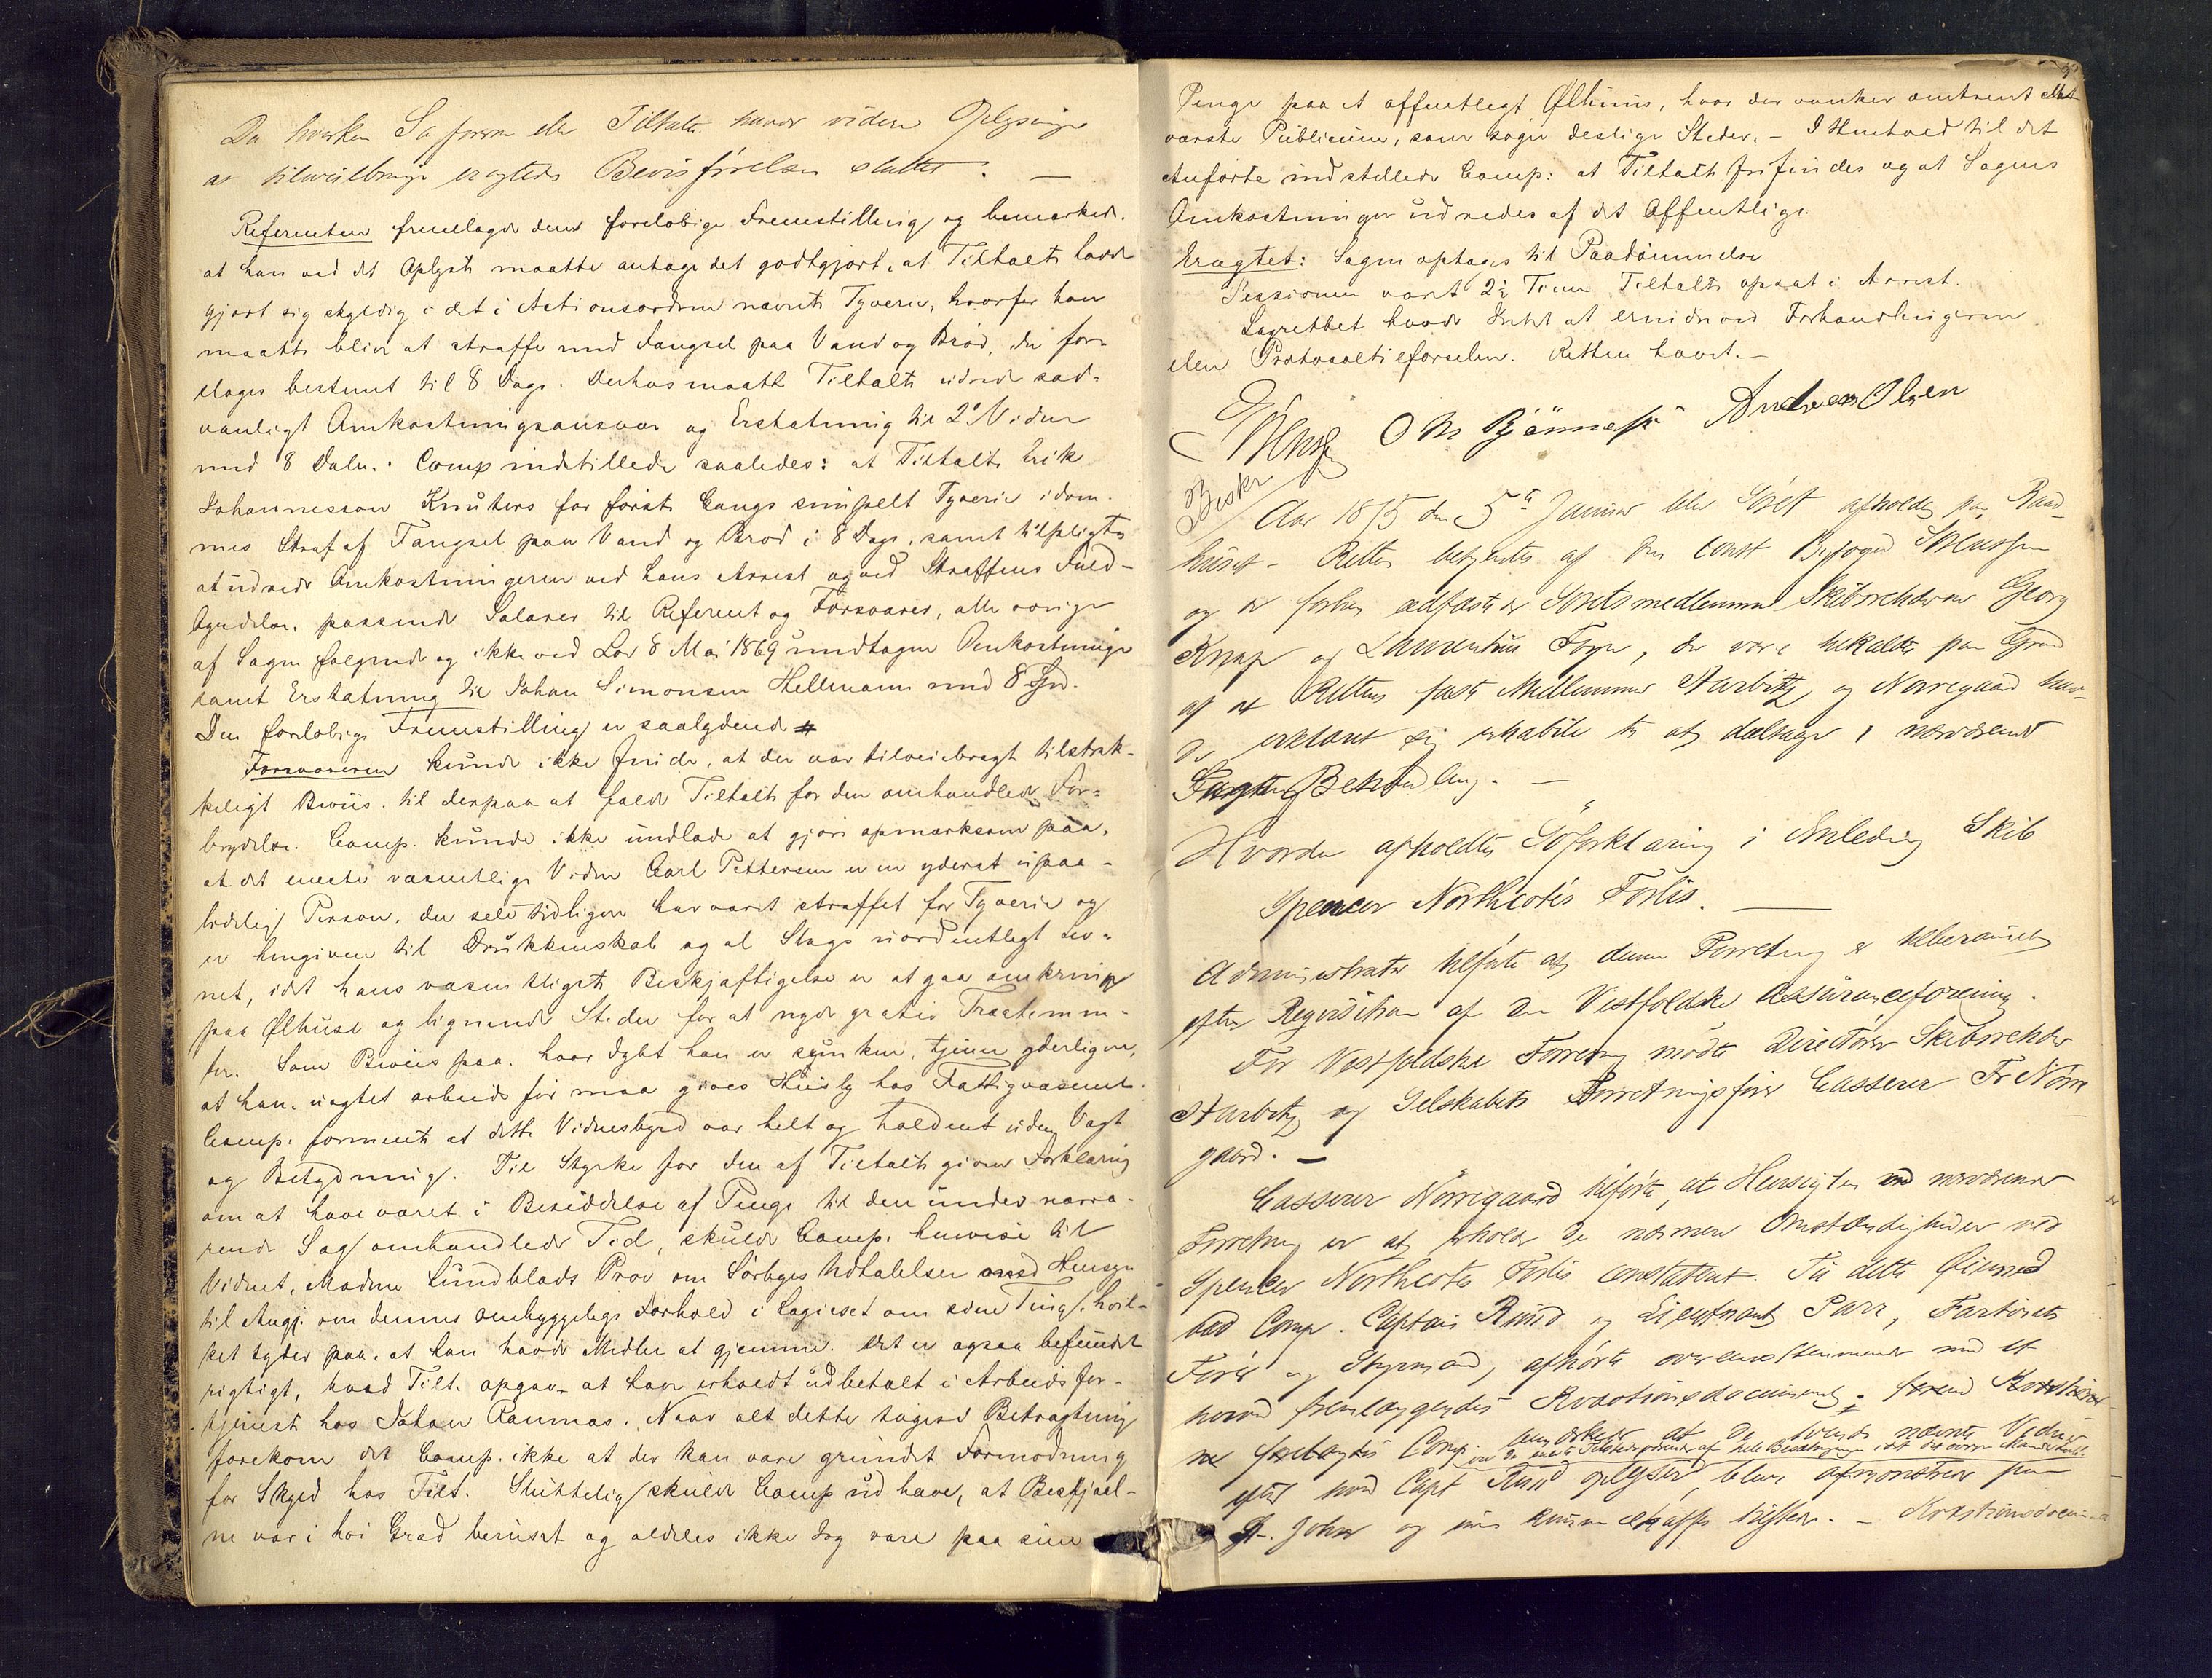 Da hverken Sagføreren eller Tiltalte havde videre Oplysninger
at tilveiebringe eragtedes Bevisførelsen sluttet. —
Referenten fremlagde den foreløbige Fremstilling og bemærkede,
at han ved det Oplyste maatte antage det godtgjort, at Tiltalte havde
gjort sig skyldig i det i Actionsordren nævnte Tyveri, hvorfor han
maatte blive at straffe med Fængsel paa Vand og Brød, der fore-
slages bestemt til 8 Dage. Derhos maatte Tiltalte udrede sæd-
vanligt Omkostningsansvar og Erstatning til 2d Vidne
med 8 Daler. Comp indstillede saaledes: at Tiltalte Erik
Johannesson Knuters for første Gangs simpelt Tyveri idøm-
mes Straf af Fængsel paa Vand og Brød i 8 Dage, samt tilpligtes
at udrede Omkostningerne ved hans Arrest og ved Straffens Fuld-
byrdelse, passende Salarer til Referent og Forsvarer, alle øvrige
af Sagen følgende og ikke ved Lov 8 Mai 1869 undtagne Omkostninger
samt Erstatning til Johan Simonsen Hellmann med 8 Spd.
Den foreløbige Fremstilling er saalydende #
Forsvareren kunde ikke finde, at der var tilveiebragt tilstræk-
keligt Beviis til derpaa at fælde Tiltalte for den omhandlede For-
brydelse. Comp. kunde ikke undlade at gjøre opmærksom paa,
at det eneste væsentlige Vidne Carl Pettersen er en yderst upaa-
lidelig Person, der selv tidligere har været straffet for Tyveri og
er hengiven til Drukkenskab og al Slags uordentligt Lev-
net, idet hans væsentligste Beskjæftigelse er at gaa omkring
paa Ølhuse og lignende Steder for at nyde gratis Tractemen-
ter. Som Beviis paa, hvor dybt han er sunken, tjener yderligere,
at han, uagtet arbeidsfør maa gives Huusly hos Fattigvæsenet.
Comp. formente at dette Vidnesbyrd var helt og holdent uden Vægt
og Betydning. Til Styrke for den af Tiltalte givne Forklaring
om at have været i Besiddelse af Penge til den under nærvæ-
rende Sag omhandlede Tid, skulde Comp. henvise til
Vidnet, Madme Lundblads Prov om Sørbyes Udtalelser med Hensyn
til Angj. om dennes omhyggelige Forhold i Logieset om sine Ting, hvil-
ket tyder paa, at han havde Midler at gjemme. Det er ogsaa befundet
rigtigt, hvad Tilt. opgav, at have erholdt udbetalt i Arbeidsfor-
tjeneste hos Johan Raumas. Naar alt dette tages i Betragtning
forekom det Comp. ikke at der kan være grundet Formodning
for Skyld hos Tilt. Sluttelig skulde Comp udhæve, at Bestjaal-
ne var i høi Grad beruset og aldeles ikke tog vare paa sine
Penge paa et offentligt Ølhuus, hvor der vanker omtrent det
værste Publicum, som søger deslige Steder. – I Henhold til det
Anførte indstillede Comp: at Tiltalte frifindes og at Sagens
Omkostninger udredes af det Offentlige.
Eragtet: Sagen optages til Paadømmelse
Sessionen varet 2½ Time Tiltalte opsat i Arrest.
Lagrettet havde Intet at erindre ved Forhandlingerne
eller Protocoltilførselen. Retten hævet. –
O M Bjønnes Andreas Olsen
Beskr.
Aar 1875 den 5te Januar blev Søret afholdt paa Raad-
huset – Retten betjentes af den const Byfoged
og de forhen edfæstede Søretsmedlemmer Skibsrehderne Georg
Knap og Laurentius Foyn, der vare tilkaldte paa Grund
af at Rettens faste Medlemmer Aarbitz og Nørregaard hav-
de erklæret sig inhabile til at deltage i nærværende
Sags Behandling. —
Hvorda afholdtes Søforklaring i Anledning Skib
Spencer Northcotes Forlis. —
Administrator tilførte at denne Forretning er tilberammet
efter Requisition af den Vestfoldske Assuranceforening.
For Vestfoldske Forening mødte Directør Skibsrehder
Aarbitz og Selskabets Forretningsfører Casserer Fr Nørre
gaard. —
Casserer Nørregaard tilførte, at Hensigten ved nærværende
Forretning er at erholde de nærmere Omstændigheder ved
Spencer Northcotes Forlis constateret. Til dette Øiemed
bad Comp. Captain Ruud og Lieutnant Parr, Fartøiets
Fører og Styrmand, afhørte overensstemmende med et
herved fremlæggendes Qvæstionsdocument;
Comp. bemærkede at De øvrige nævnte Vidner
efter hvad Capt Ruud oplyser, bleve afmønstrede paa
St. John og nu kunne skaffes tilstede. –